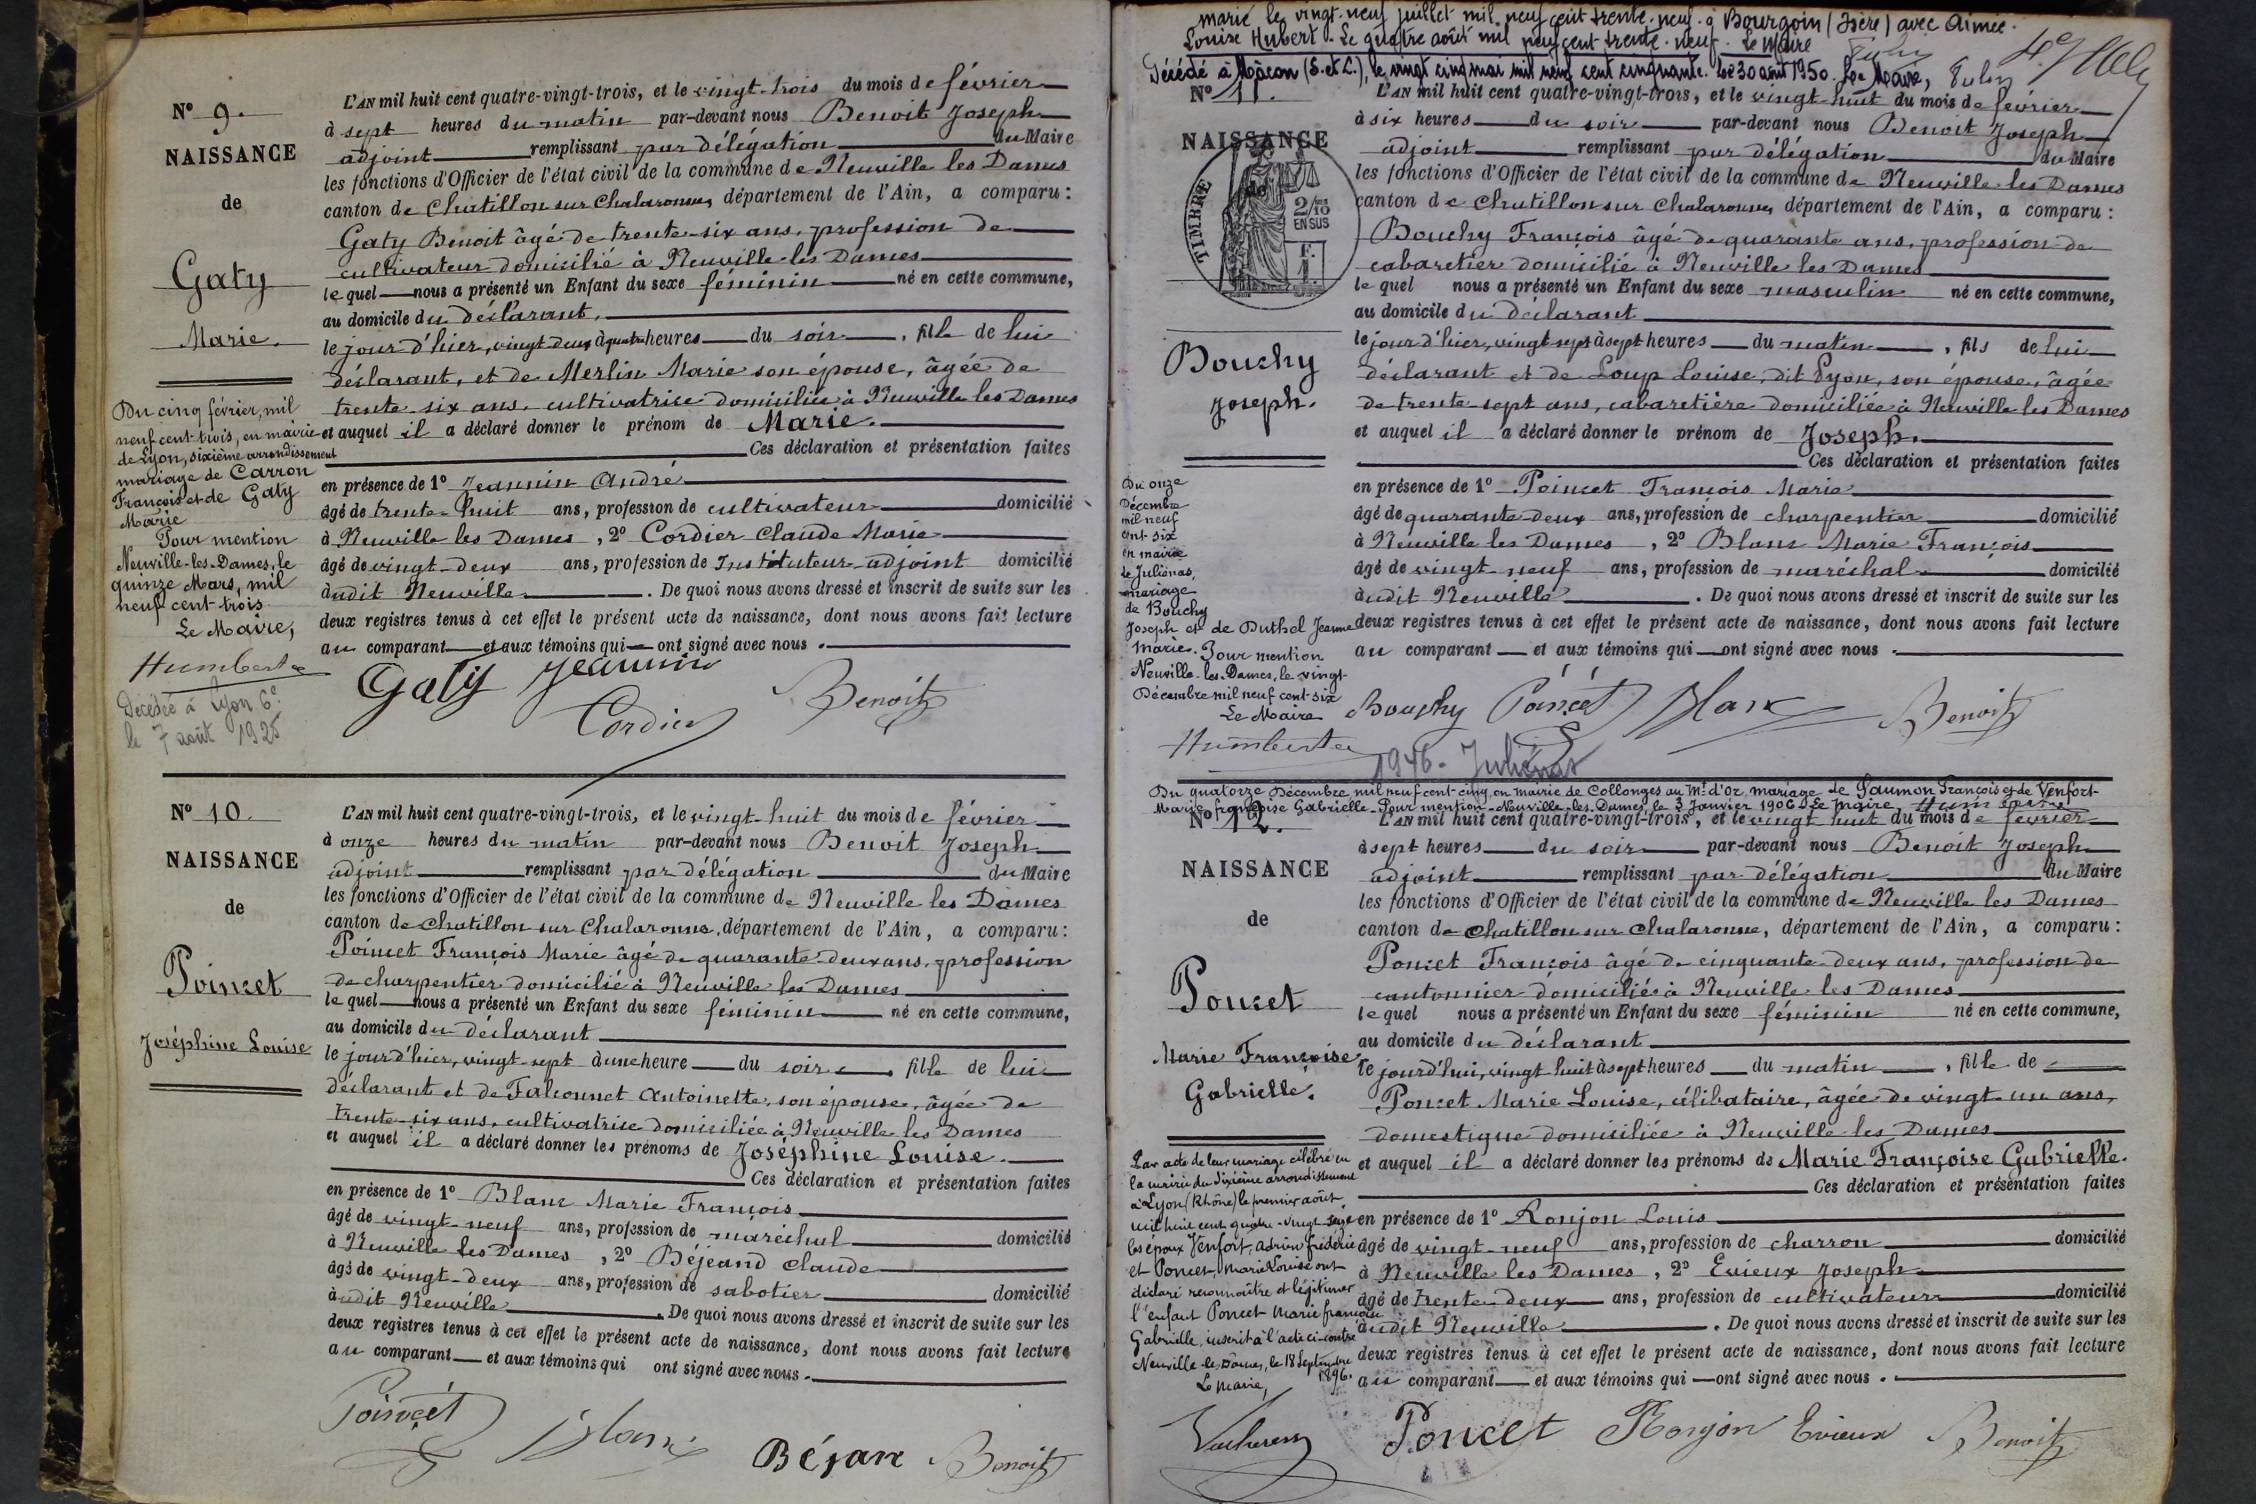 N° 9.
NAISSANCE
de
Gaty
Marie.
Du cinq février, mil
neuf cent trois, en mairie
de Lyon, sixième arrondissement
mariage de Carron
François et de Gaty
Marie
Pour mention
Neuville-les-Dames, le
quinze Mars, mil
neuf cent-trois
Le Maire,
Humbert
Décédée à Lyon 6e
le 7 août 1925
L'AN mil huit cent quatre-vingt-trois, et le vingt-trois du mois de février
à sept heures du matin par-devant nous Benoit Joseph
adjoint remplissant par délégation du Maire
les fonctions d'Officier de l'état civil de la commune de Neuville les Dames
canton de Chatillon sur Chalaronne, département de l'Ain, a comparu :
Gaty Benoit âgé de trente-six ans, profession de
cultivateur domicilié à Neuville les Dames
le quel nous a présenté un Enfant du sexe féminin né en cette commune,
au domicile du déclarant,
le jour d'hier, vingt deux à quatre heures du soir, fille de lui
déclarant, et de Merlin Marie son épouse, âgée de
trente-six ans, cultivatrice domiciliée à Neuville les Dames
et auquel il a déclaré donner le prénom de Marie.
Ces déclaration et présentation faites
en présence de 1° Jeannin André
âgé de trente-huit ans, profession de cultivateur domicilié
à Neuville les Dames, 2° Cordier Claude Marie
âgé de vingt-deux ans, profession de Instituteur-adjoint domicilié
audit Neuville. De quoi nous avons dressé et inscrit de suite sur les
deux registres tenus à cet effet le présent acte de naissance, dont nous avons fait lecture
au comparant et aux témoins qui ont signé avec nous.
Gaty Jeannin
Cordier Benoit
N° 10.
NAISSANCE
de
Poincet
Joséphine Louise
L'AN mil huit cent quatre-vingt-trois, et le vingt-huit du mois de février
à onze heures du matin par-devant nous Benoit Joseph
adjoint remplissant par délégation du Maire
les fonctions d'Officier de l'état civil de la commune de Neuville les Dames
canton de Chatillon sur Chalaronne, département de l'Ain, a comparu :
Poincet François Marie âgé de quarante-deux ans, profession
de charpentier domicilié à Neuville les Dames
le quel nous a présenté un Enfant du sexe féminin né en cette commune,
au domicile du déclarant
le jour d'hier, vingt-sept à une heure du soir, fille de lui
déclarant et de Falconnet Antoinette, son épouse, âgée de
trente-six ans, cultivatrice domiciliée à Neuville les Dames
et auquel il a déclaré donner les prénoms de Joséphine Louise.
Ces déclaration et présentation faites
en présence de 1° Blanc Marie François
âgé de vingt-neuf ans, profession de maréchal domicilié
à Neuville les Dames, 2° Béjeand Claude
âgé de vingt-deux ans, profession de sabotier domicilié
audit Neuville. De quoi nous avons dressé et inscrit de suite sur les
deux registres tenus à cet effet le présent acte de naissance, dont nous avons fait lecture
au comparant et aux témoins qui ont signé avec nous.
Poincet Blanc Béjan Benoit
marié le vingt-neuf juillet mil neuf cent trente-neuf à Bourgoin (Isère) avec Aimée
Louise Hubert. Le quatre août mil neuf cent trente-neuf. Le Maire
Décédé à Mâcon (S. et L.), le vingt cinq mai mil neuf cent cinquante. Le 30 août 1950. Le Maire,
N° 11.
NAISSANCE
de
TIMBRE
2/10 EN SUS
F.
1.
Bouchy
Joseph.
Du onze
Décembre
mil neuf
cent-six
en mairie
de Juliénas,
mariage
de Bouchy
Joseph et de Duthel Jeanne
Marie. Pour mention
Neuville-les-Dames, le vingt
Décembre mil neuf cent-six
Le Maire
Humbert
L'AN mil huit cent quatre-vingt-trois, et le vingt-huit du mois de février
à six heures du soir par-devant nous Benoit Joseph
adjoint remplissant par délégation du Maire
les fonctions d'Officier de l'état civil de la commune de Neuville les Dames
canton de Chatillon sur Chalaronne, département de l'Ain, a comparu :
Bouchy François âgé de quarante ans, profession de
cabaretier domicilié à Neuville les Dames
le quel nous a présenté un Enfant du sexe masculin né en cette commune,
au domicile du déclarant
le jour d'hier, vingt-sept à sept heures du matin, fils de lui
déclarant et de Loup Louise, dit Lyon, son épouse, âgée
de trente-sept ans, cabaretière domiciliée à Neuville les Dames
et auquel il a déclaré donner le prénom de Joseph.
Ces déclaration et présentation faites
en présence de 1° Poincet François Marie
âgé de quarante-deux ans, profession de charpentier domicilié
à Neuville les Dames, 2° Blanc Marie François
âgé de vingt-neuf ans, profession de maréchal domicilié
audit Neuville. De quoi nous avons dressé et inscrit de suite sur les
deux registres tenus à cet effet le présent acte de naissance, dont nous avons fait lecture
au comparant et aux témoins qui ont signé avec nous.
Bouchy Poincet Blanc Benoit
1946. Juliénas
Du quatorze Décembre mil neuf cent-cinq, en mairie de Collonges au Mt d'Or mariage de Gaumon François et de Venfort
Marie françoise Gabrielle. Pour mention. Neuville-les-Dames le 3 Janvier 1906. Le Maire Humbert
N° 12.
NAISSANCE
de
Poncet
Marie Françoise
Gabrielle.
Par acte de leur mariage célébré en
la mairie du sixième arrondissement
à Lyon (Rhône) le premier août
mil huit cent quatre-vingt-seize
les époux Venfort, Adrien frédéric
et Poncet, Marie Louise ont
déclaré reconnaître et légitimer
l'enfant Poncet Marie françoise
Gabrielle, inscrit à l'acte ci-contre
Neuville-les-Dames, le 18 Septembre
1896.
Le Maire,
L'AN mil huit cent quatre-vingt-trois, et le vingt huit du mois de février
à sept heures du soir par-devant nous Benoit Joseph
adjoint remplissant par délégation du Maire
les fonctions d'Officier de l'état civil de la commune de Neuville les Dames
canton de Chatillon sur Chalaronne, département de l'Ain, a comparu :
Poncet François âgé de cinquante-deux ans, profession de
cantonnier domicilié à Neuville les Dames
le quel nous a présenté un Enfant du sexe féminin né en cette commune,
au domicile du déclarant
le jourd'hui, vingt huit à sept heures du matin, fille de
Poncet Marie Louise, célibataire, âgée de vingt-un ans,
domestique domiciliée à Neuville les Dames
et auquel il a déclaré donner les prénoms de Marie Françoise Gabrielle.
Ces déclaration et présentation faites
en présence de 1° Ronjon Louis
âgé de vingt-neuf ans, profession de charron domicilié
à Neuville les Dames, 2° Evieux Joseph
âgé de trente-deux ans, profession de cultivateur domicilié
audit Neuville. De quoi nous avons dressé et inscrit de suite sur les
deux registres tenus à cet effet le présent acte de naissance, dont nous avons fait lecture
au comparant et aux témoins qui ont signé avec nous.
Poncet Ronjon Evieux Benoit
AIN